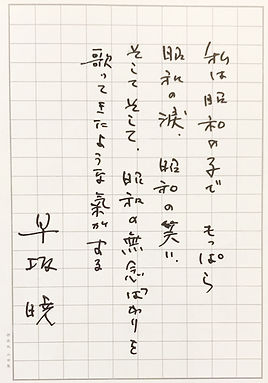 私は昭和の子で もっぱら
昭和の涙、昭和の笑い、
そして そして、昭和の無念ばかりを
歌ってきたような氣がする
早坂 暁